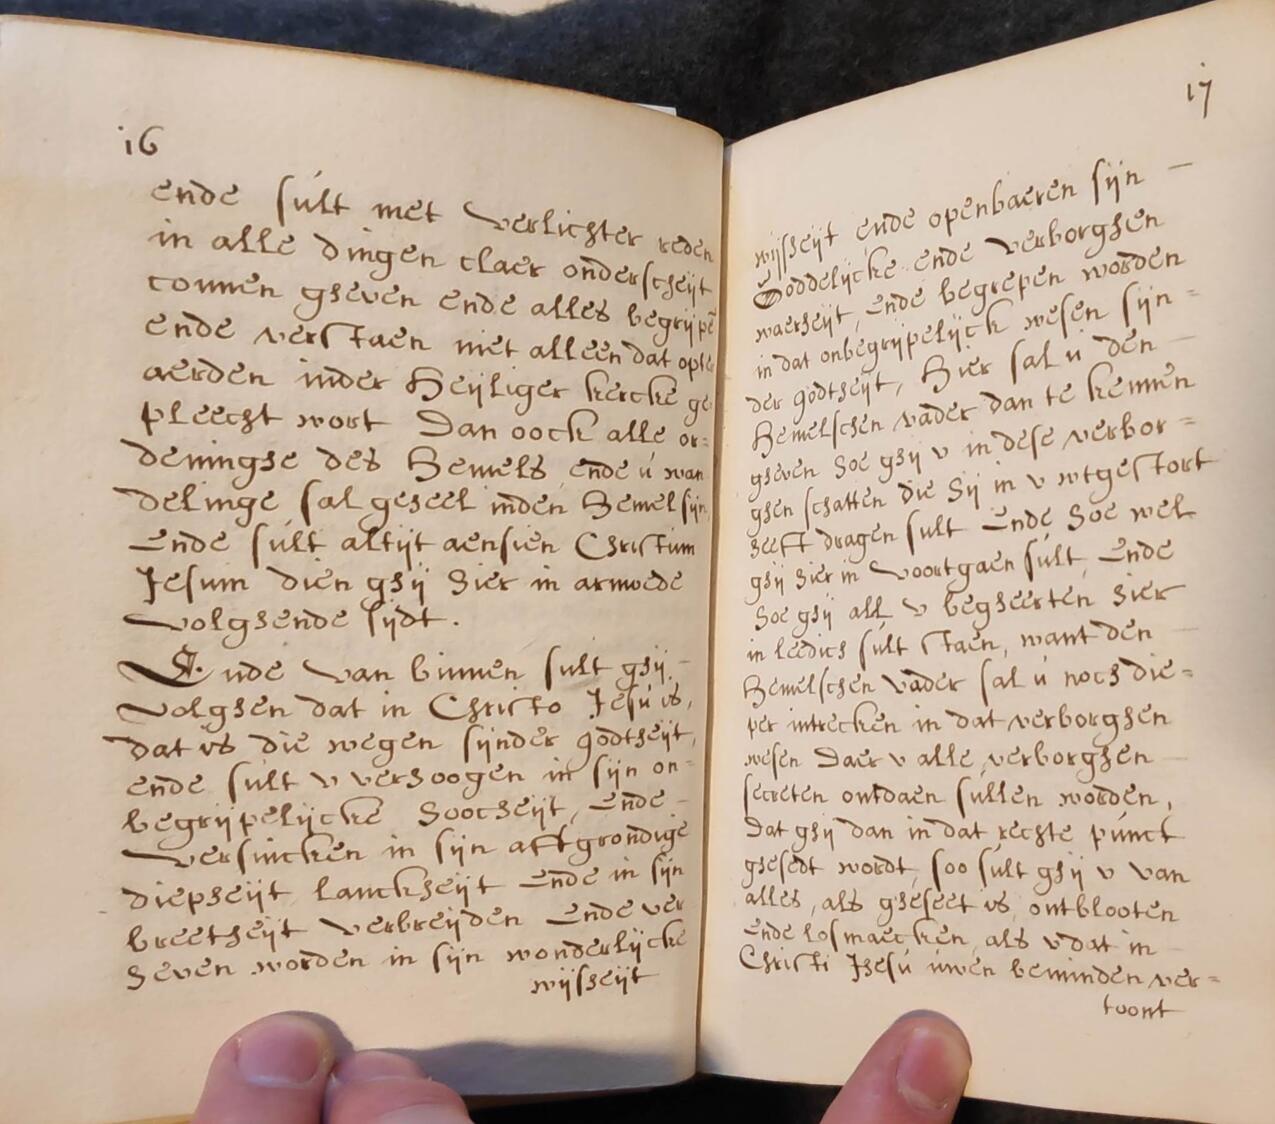 16
ende sult met verlichter reden
in alle dingen claer onderscheijt
connen gheven ende alles begrijpē
ende verstaen niet alleen dat opter
aerden inder Heijliger kercke ge
pleecht wort Dan oock alle or=
deninghe des Hemels, ende ú wan
delinge sal geheel inden Hemel sijn,
Ende súlt altijt aensien Christum
Jesum dien ghij hier in armoede
volghende sijdt.
Ende van binnen sult ghij -
volghen dat in Christo Jesú is,
dat is die wegen sijnder godtheijt,
ende súlt v verhoogen in sijn on=
begrijpelijcke hoocheijt, Ende -
versincken in sijn affgrondige
diepheijt lanckheijt Ende in sijn
breetheijt verbreijden Ende ver
heven worden in sijn wonderlijcke
wijsheijt
17
wijsheijt ende openbaeren sijn -
Goddelijcke ende verborghen
waerheijt, ende begrepen worden
in dat onbegrijpelijck wesen sijn=
der godtheijt, Hier sal ú den -
Hemelschen vader dan te kennen
gheven hoe ghij v in dese verbor=
ghen schatten die hij in v wtgestort
heeft dragen sult Ende hoe wel
ghij hier in voortgaen súlt, Ende
hoe ghij all v begheerten hier
in leedich súlt staen, want den -
Hemelschen vader sal ú noch die=
per intrecken in dat verborghen
wesen Daer v alle verborghen -
secreten ontdaen súllen worden,
Dat ghij dan in dat rechte púnct
ghesedt wordt, soo súlt ghij v van
alles, als gheseet is, ontblooten
Ende los maecken, als v dat in -
Christi Jhesú úwen beminden ver=
toont